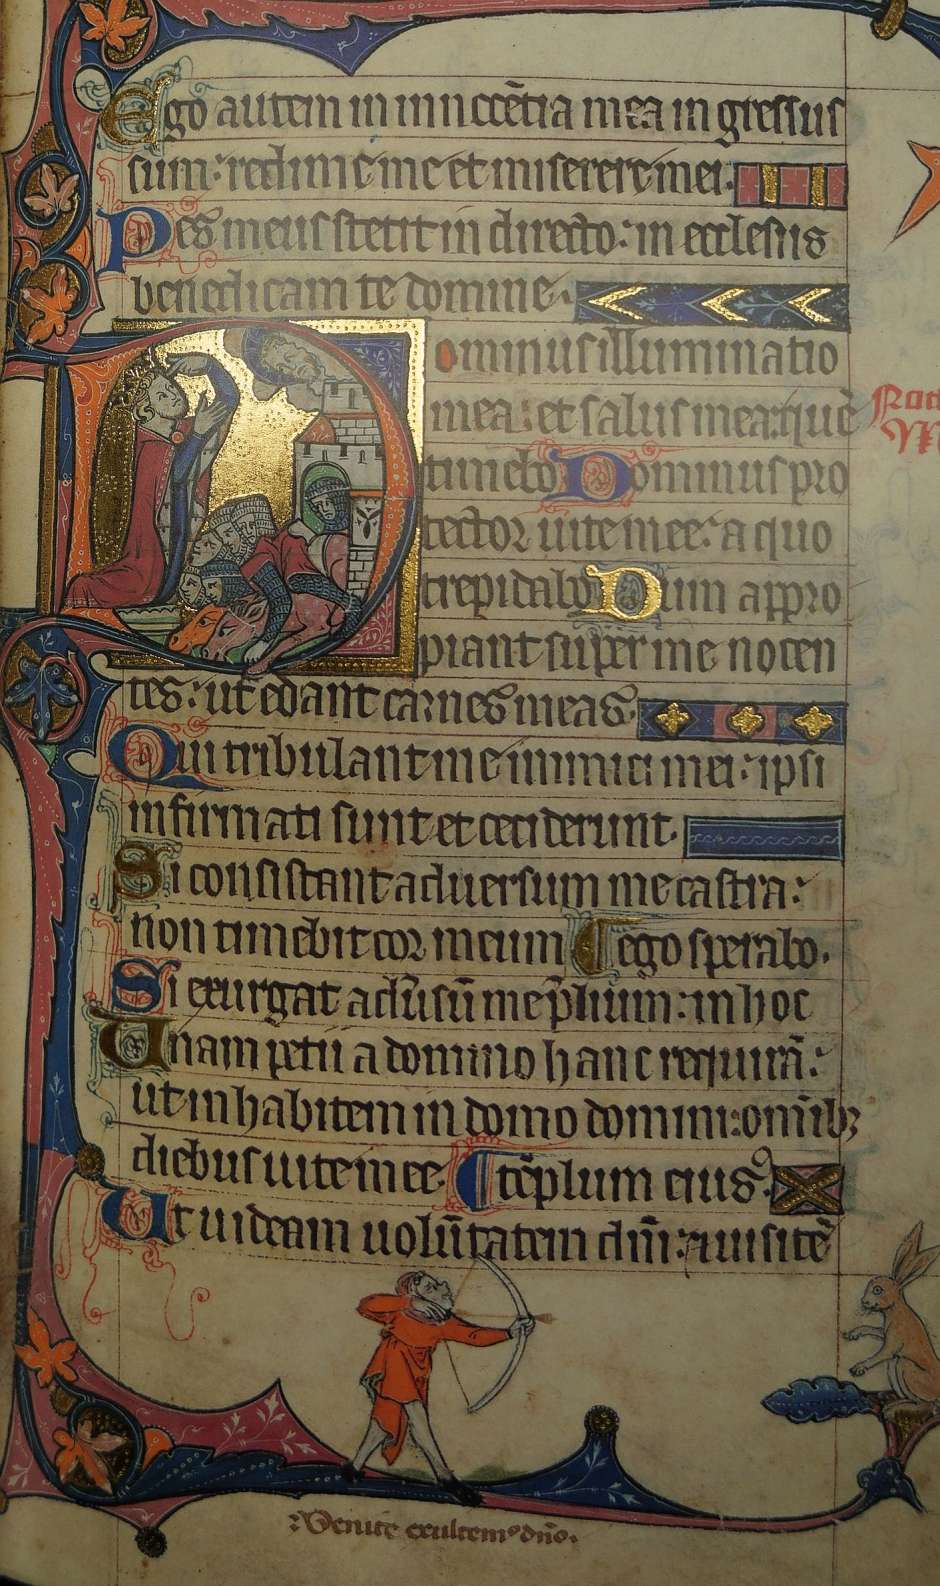 Ego autem in innocẽtia mea ingressus
sum: redime me et miserere mei.
Pes meus stetit in directo: in ecclesiis
benedicam te domine.
Dominus illuminatio
mea: et salus mea: quẽ
timebo Dominus pro
tector uite mee: a quo
trepidabo Dum appro
piant super me nocen
tes: ut edant carnes meas.
Qui tribulant me inimici mei: ipsi
infirmati sunt et ceciderunt.
Si consistant aduersum me castra:
non timebit cor meum ego sperabo.
Si exurgat aduˀsũ me p̃lium: in hoc
Unam petii a domino hanc requirã:
ut inhabitem in domo domini: omĩbꝫ
diebus uite mee. tẽplum eius.
Ut uideam uolũtatem dñi: ⁊ uisitẽ
Venite exultemꝰ dño.